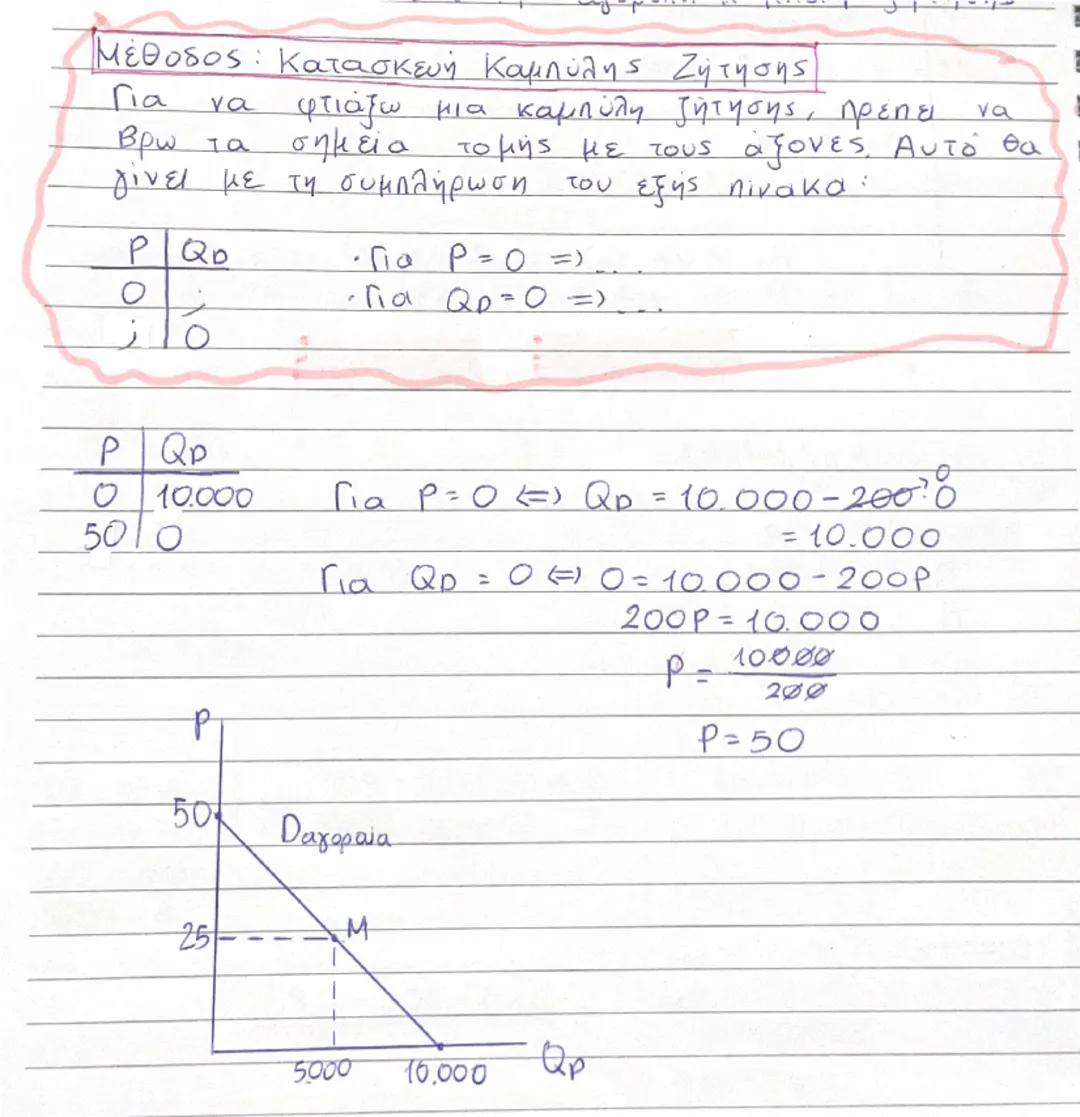 Μέθοδος: Κατασκευή Καμπύλης Ζήτησης
Για να φτιάξω μια καμπύλη ζήτησης, πρέπει να
βρω τα σημεία τομής με τους άξονες. Αυτό θα
γίνει με τη συμπλήρωση του εξής πίνακα:
P | QD · Για P = 0 =) ...
0 | ; · Για QD = 0 =) ...
; | 0
P | QD
0 | 10.000 Για P = 0 <=> QD = 10.000 - 200·0 0
50 | 0 = 10.000
Για QD = 0 <=> 0 = 10.000 - 200P
200P = 10.000
P = 10000 / 200
P = 50
P
50 Dαγοραία
25 M
5000 10.000 QD